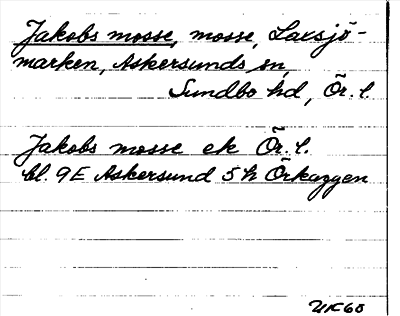 Jakobs mosse, mosse, Laxsjö-
marken, Askersunds sn,
Sundbo hd, Ör. l.
Jakobs mosse ek Ör. l.
bl. 9E Askersund 5h Örkaggen
UK60